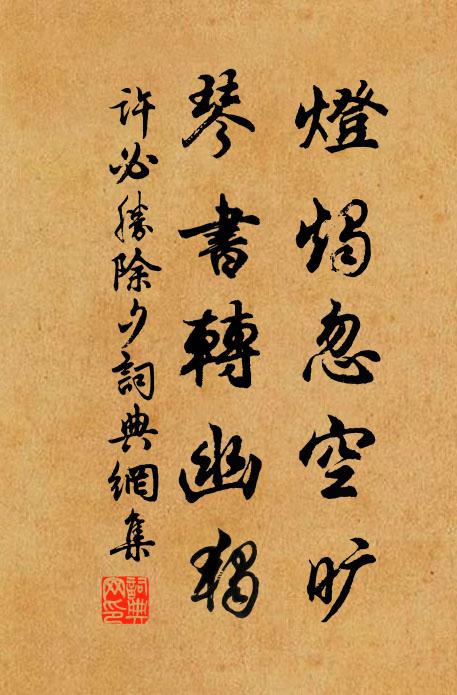 燈燭忽空曠
琴書轉幽獨
許必勝除夕詞典網集
詞典網印